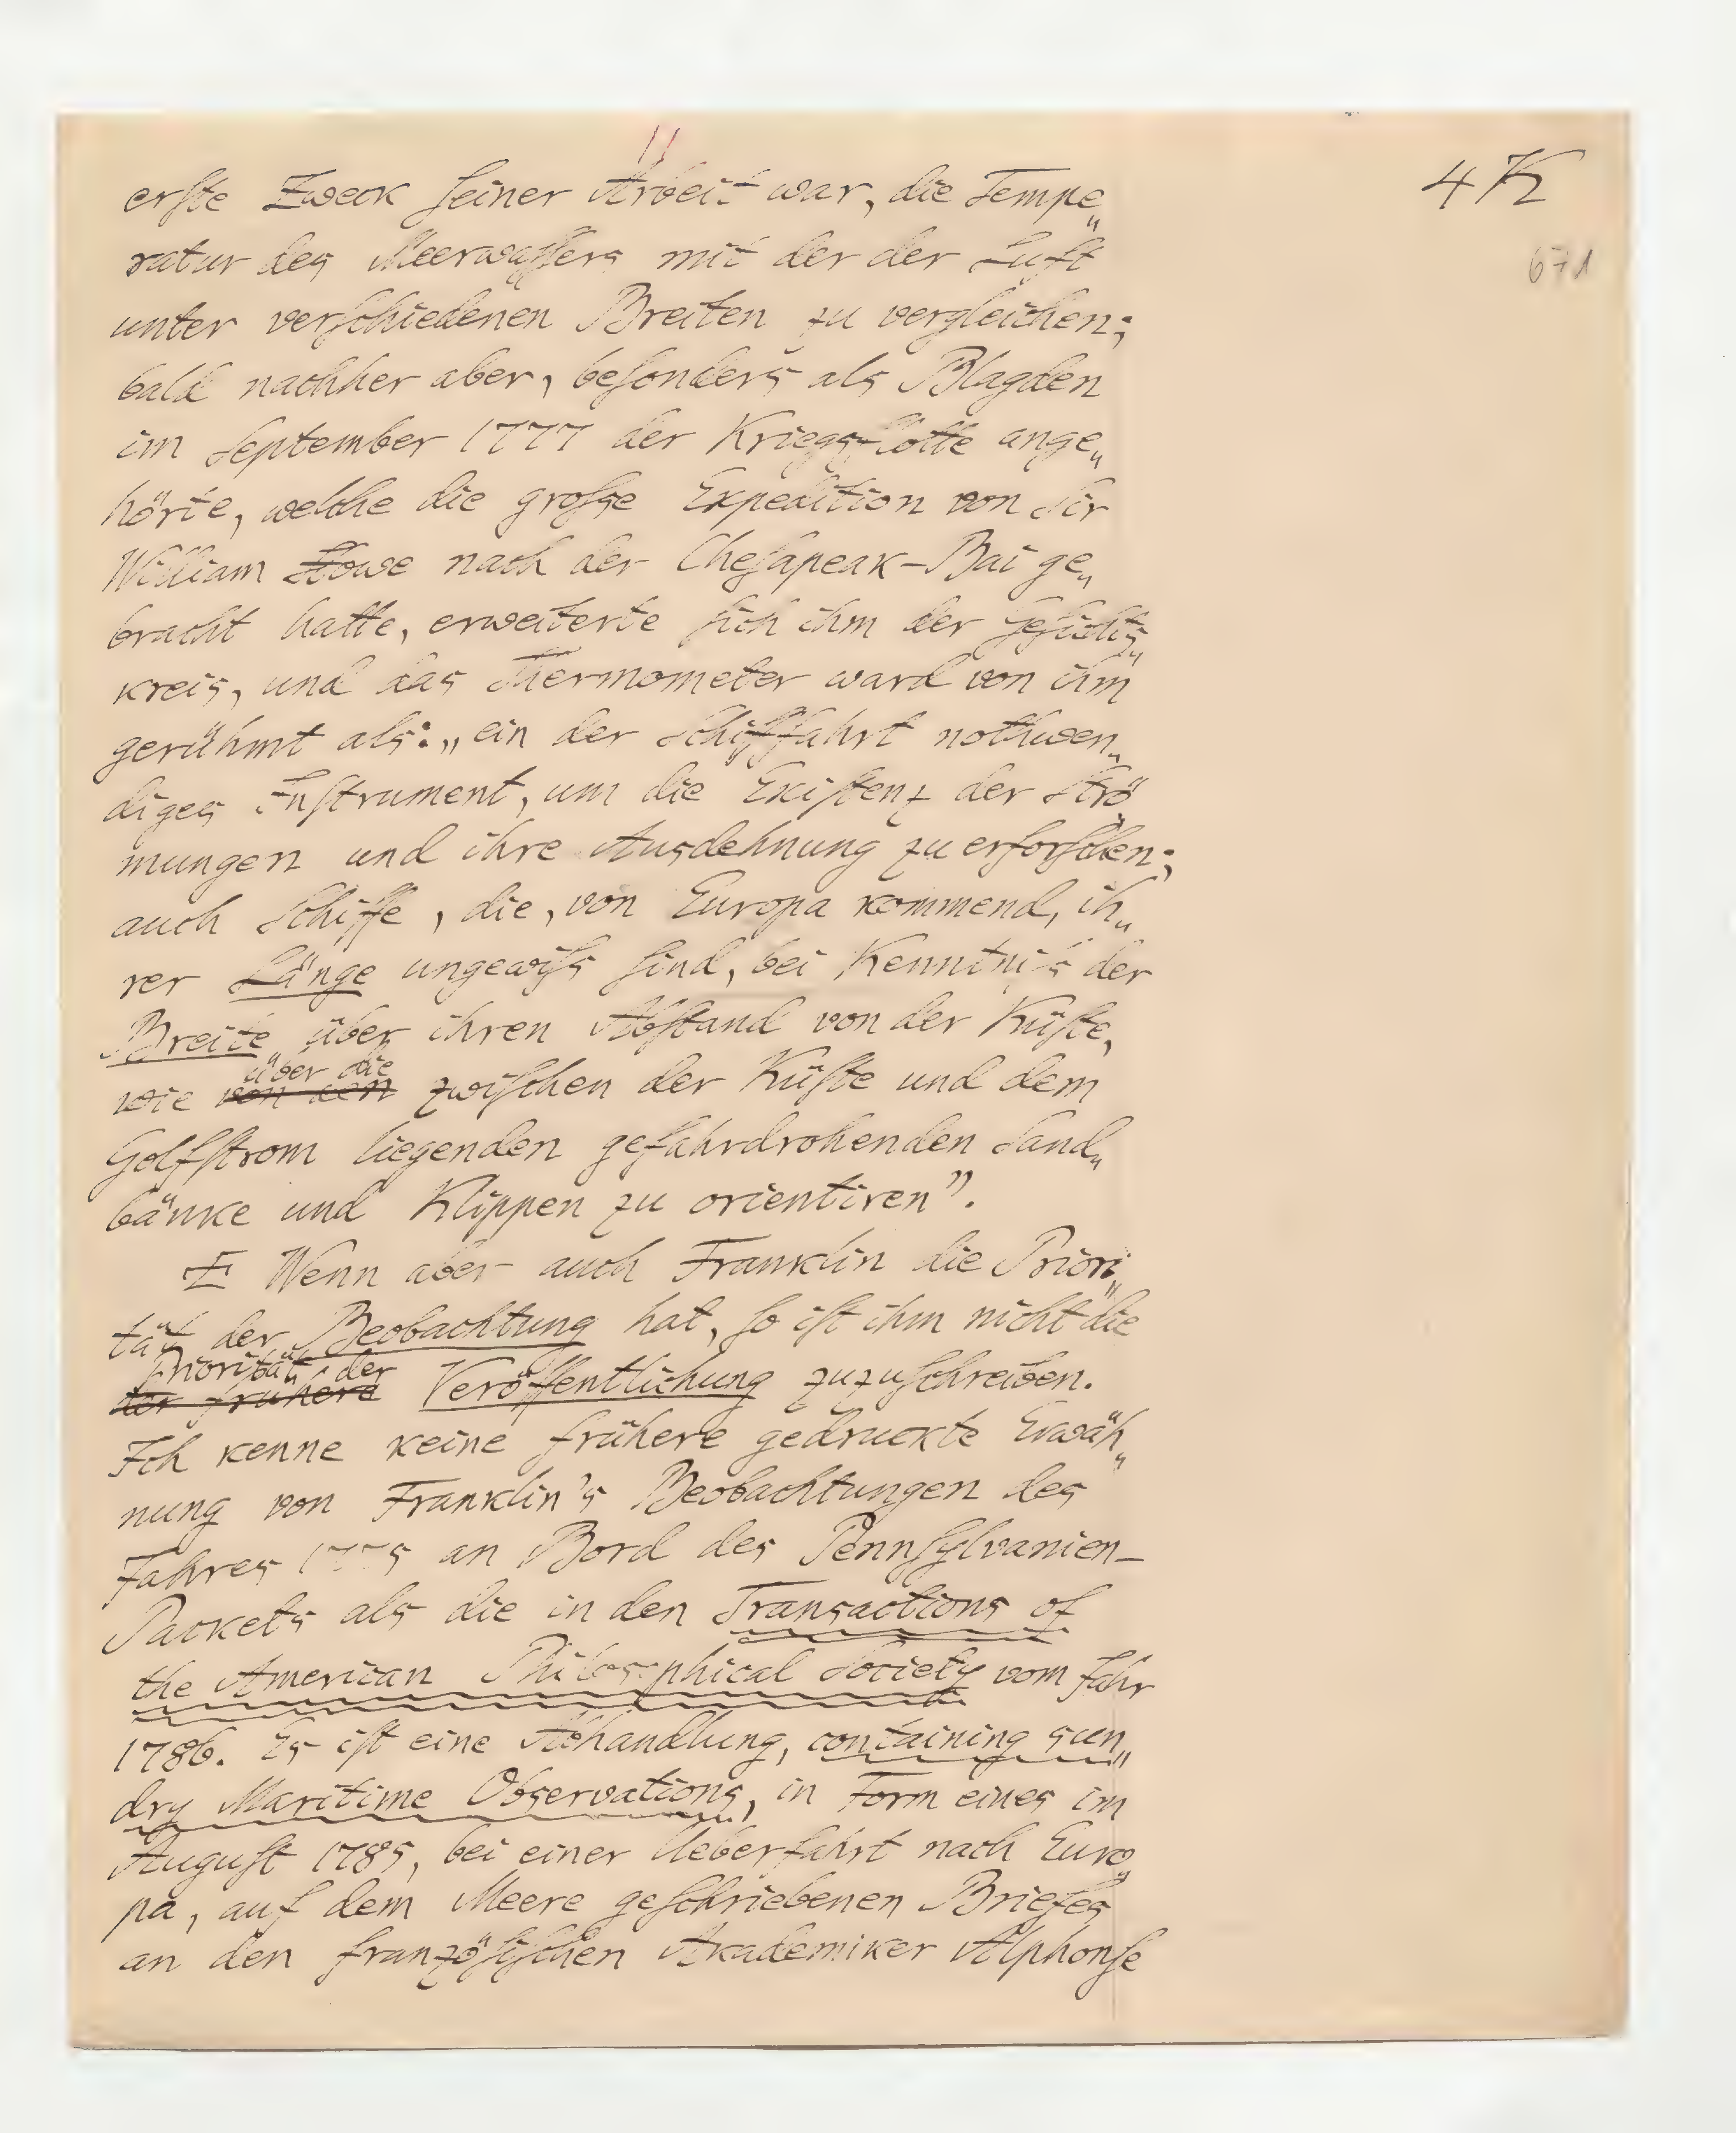 4 K
671
erste Zweck seiner Arbeit war, die Tempe„
ratur des Meerwassers mit der der Luft
unter verschiedenen Breiten zu vergleichen;
bald nachher aber, besonders als Blagden
im September 1777 der Kriegsflotte ange„
hörte, welche die große Expedition von Sir
William Howe nach der Chesapeak-Bai ge„
bracht hatte, erweiterte sich ihm der Gesichts„
kreis, und das Thermometer ward von ihm
gerühmt als: „ein der Schifffahrt nothwen„
diges Instrument, um die Existenz der Strö„
mungen und ihre Ausdehnung zu erforschen;
auch Schiffe, die, von Europa kommend, ih„
rer Länge ungewiss sind, bei Kenntniss der
Breite über ihren Abstand von der Küste,
über die
wie von den zwischen der Küste und dem
Golfstrom liegenden gefahrdrohenden Sand„
bänke und Klippen zu orientiren”.
Wenn aber auch Franklin die Priori„
tät der Beobachtung hat, so ist ihm nicht die
Priorität der
der frühere Veröffentlichung zuzuschreiben.
Ich kenne keine frühere gedruckte Erwäh„
nung von Franklin's Beobachtungen des
Jahres 1775 an Bord des Pennsylvanien-
Packets als die in den Transactions of
the American Philosophical Society vom Jahr
1786. Es ist eine Abhandlung, containing sun„
dry Maritime Observations, in Form eines im
August 1785, bei einer Ueberfahrt nach Euro„
pa, auf dem Meere geschriebenen Briefes
an den französischen Akademiker Alphonse